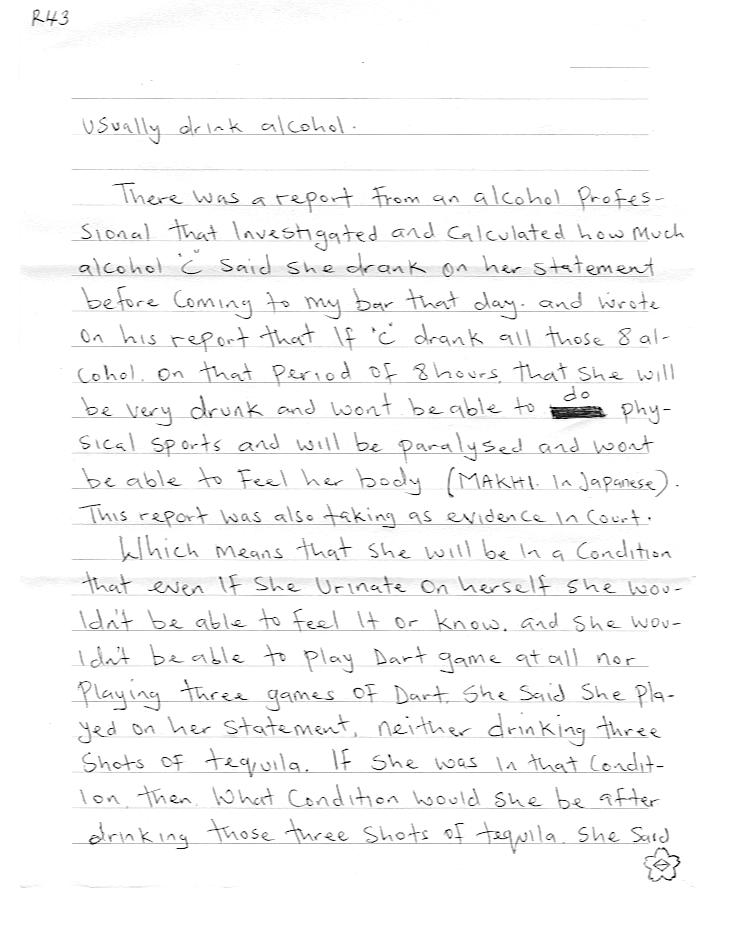 R43
usually drink alcohol.
There was a report from an alcohol Profes-
sional that Investigated and Calculated how Much
alcohol "C" Said She drank on her statement
before Coming to my bar that day. and wrote
on his report that If "C" drank all those 8 al-
cohol. on that Period of 8 hours, that She will
be very drunk and wont be able to do phy-
sical sports and will be paralysed and wont
be able to Feel her body (MAKHI. In Japanese).
This report was also taking as evidence In Court.
Which means that She will be In a Condition
that even If She Urinate on herself She wou-
ldn't be able to feel It or know. and She wou-
ldn't be able to play Dart game at all nor
Playing three games of Dart. She Said She Pla-
yed on her statement, neither drinking three
Shots of tequila. If She was In that Condit-
ion, then, What Condition would She be after
drinking those three Shots of tequila. She Said